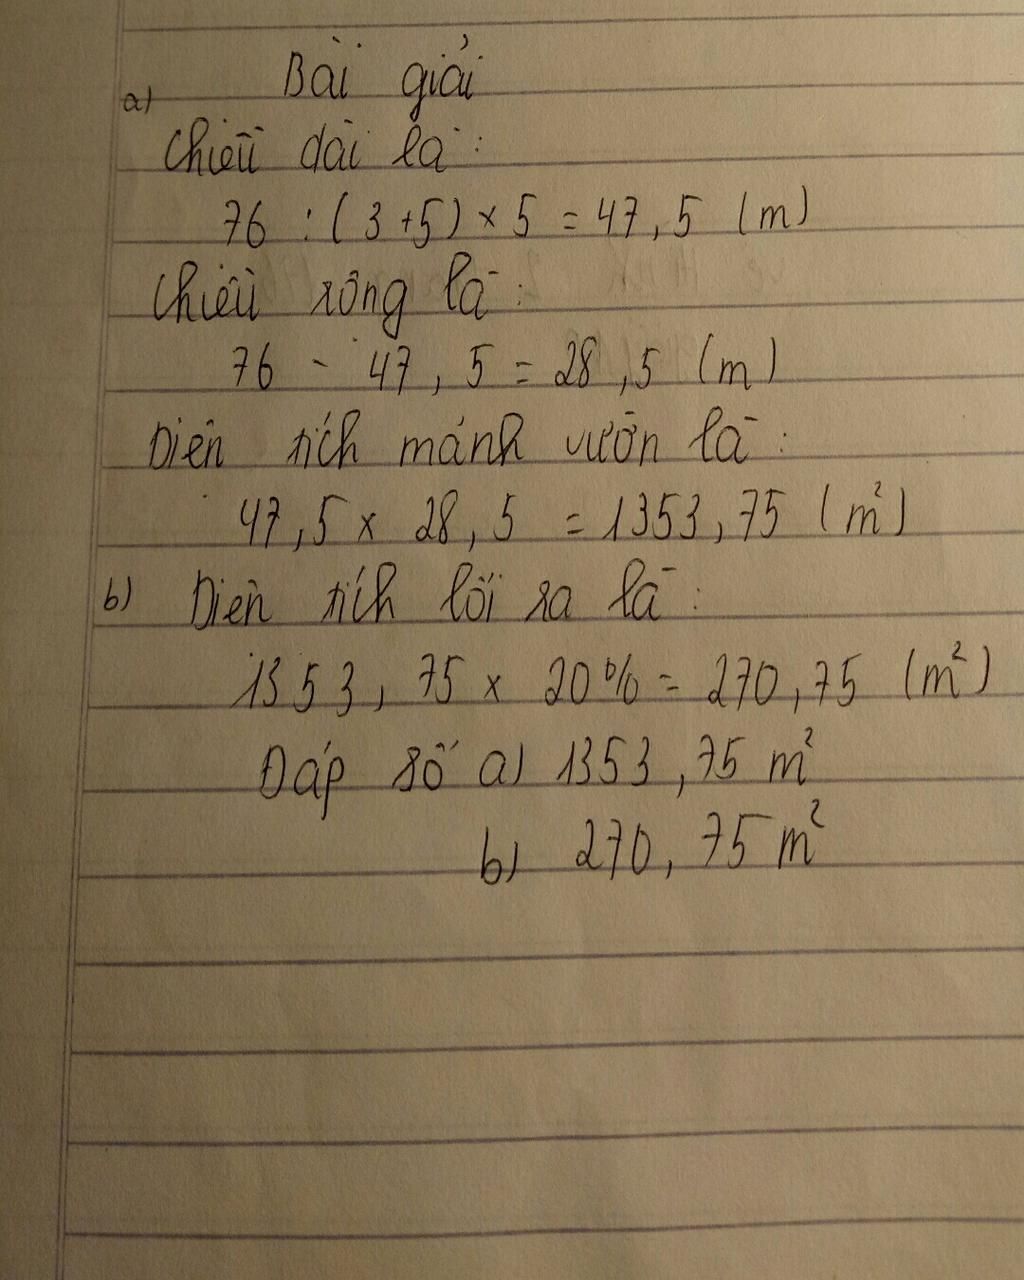 Bài giải
a)
Chiều dài là :
76 : ( 3 + 5 ) × 5 = 47, 5 (m)
Chiều rộng là :
76 - 47, 5 = 28, 5 (m)
Diện tích mảnh vườn là :
47, 5 × 28, 5 = 1353, 75 (m²)
b) Diện tích lối ra là :
1353, 75 × 20% = 270, 75 (m²)
Đáp số a) 1353, 75 m²
b) 270, 75 m²